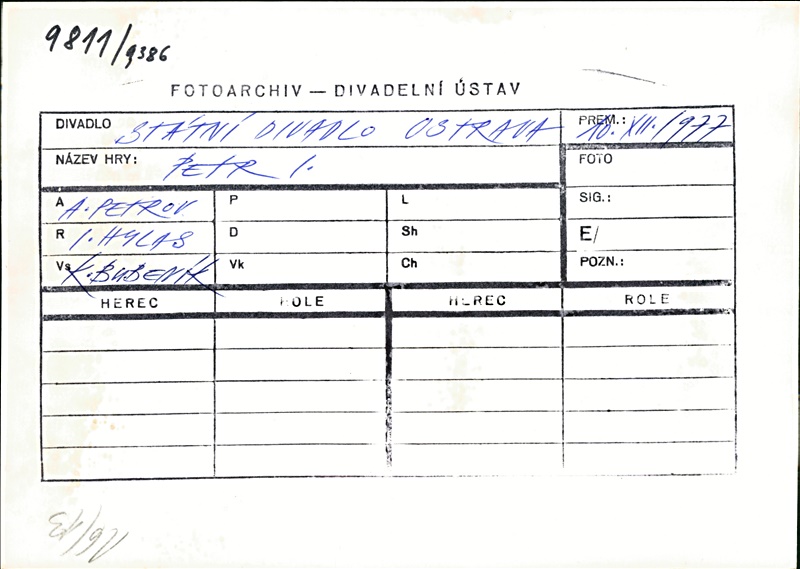 9811/9386
FOTOARCHIV — DIVADELNÍ ÚSTAV
DIVADLO STÁTNÍ DIVADLO OSTRAVA PREM.: 10. XII. 1977
NÁZEV HRY: PETR I. FOTO
A A. PETROV P L SIG.:
R I. HYLAS D Sh E/
Vs K. BUBENÍK Vk Ch POZN.:
HEREC ROLE HEREC ROLE